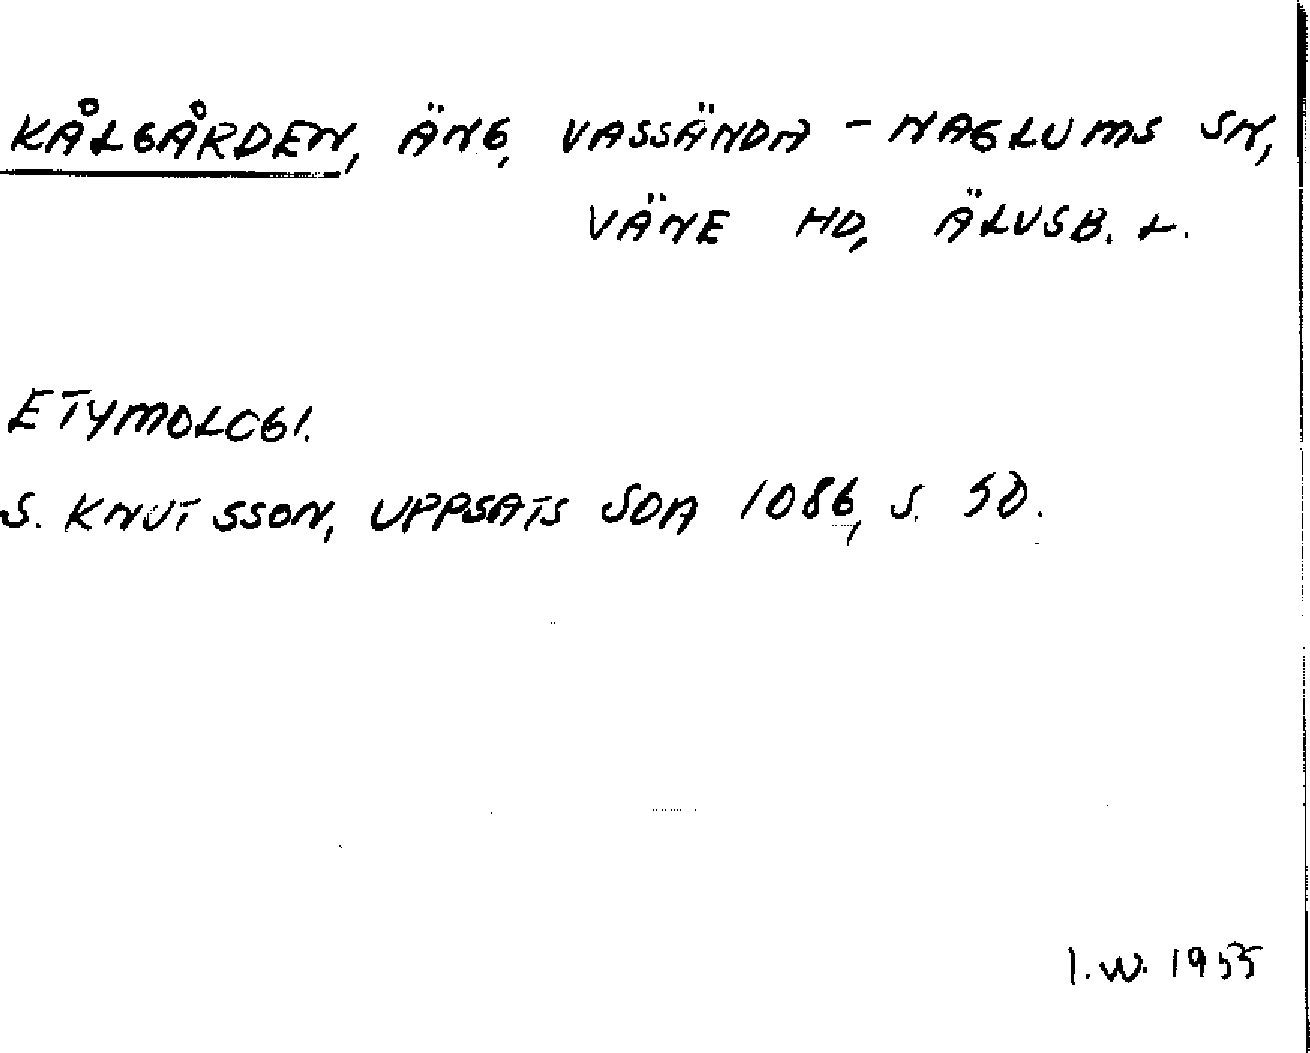 KÅLGÅRDEN, ÄNG, VASSÄNDA - NAGLUMS SN,
VÄNE HD, ÄLVSB. L.
ETYMOLOGI.
S. KNUTSSON, UPPSATS SOA 1086, S. 50.
I.W. 1955